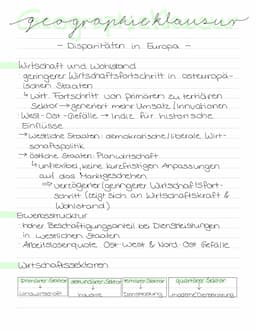 geographieklausur
- Disparitäten in Europa -
Wirtschaft und Wohlstand
geringerer Wirtschaftsfortschritt in osteuropä-
ischen Staaten
↳ wirt. Fortschritt von primären zu tertiären
Sektor → generiert mehr Umsatz/Innovationen
West-Ost-Gefälle → Indiz für historische
Einflüsse
→ westliche Staaten: demokratische/liberale Wirt-
schaftspolitik
→ östliche Staaten: Planwirtschaft
↳ unflexibel, keine kurzfristigen Anpassungen
auf das Marktgeschehen
⇒ verzögerter/geringerer Wirtschaftsfort-
schritt (zeigt sich an Wirtschaftskraft &
Wohlstand)
Erwerbsstruktur
- hoher Beschäftigungsanteil bei Dienstleistungen
in westlichen Staaten
- Arbeitslosenquote Ost-West & Nord-Ost Gefälle
Wirtschaftssektoren
primärer Sektor sekundärer Sektor tertiärer Sektor quartärer Sektor
Landwirtschaft Industrie Dienstleistung moderne Dienstleistung